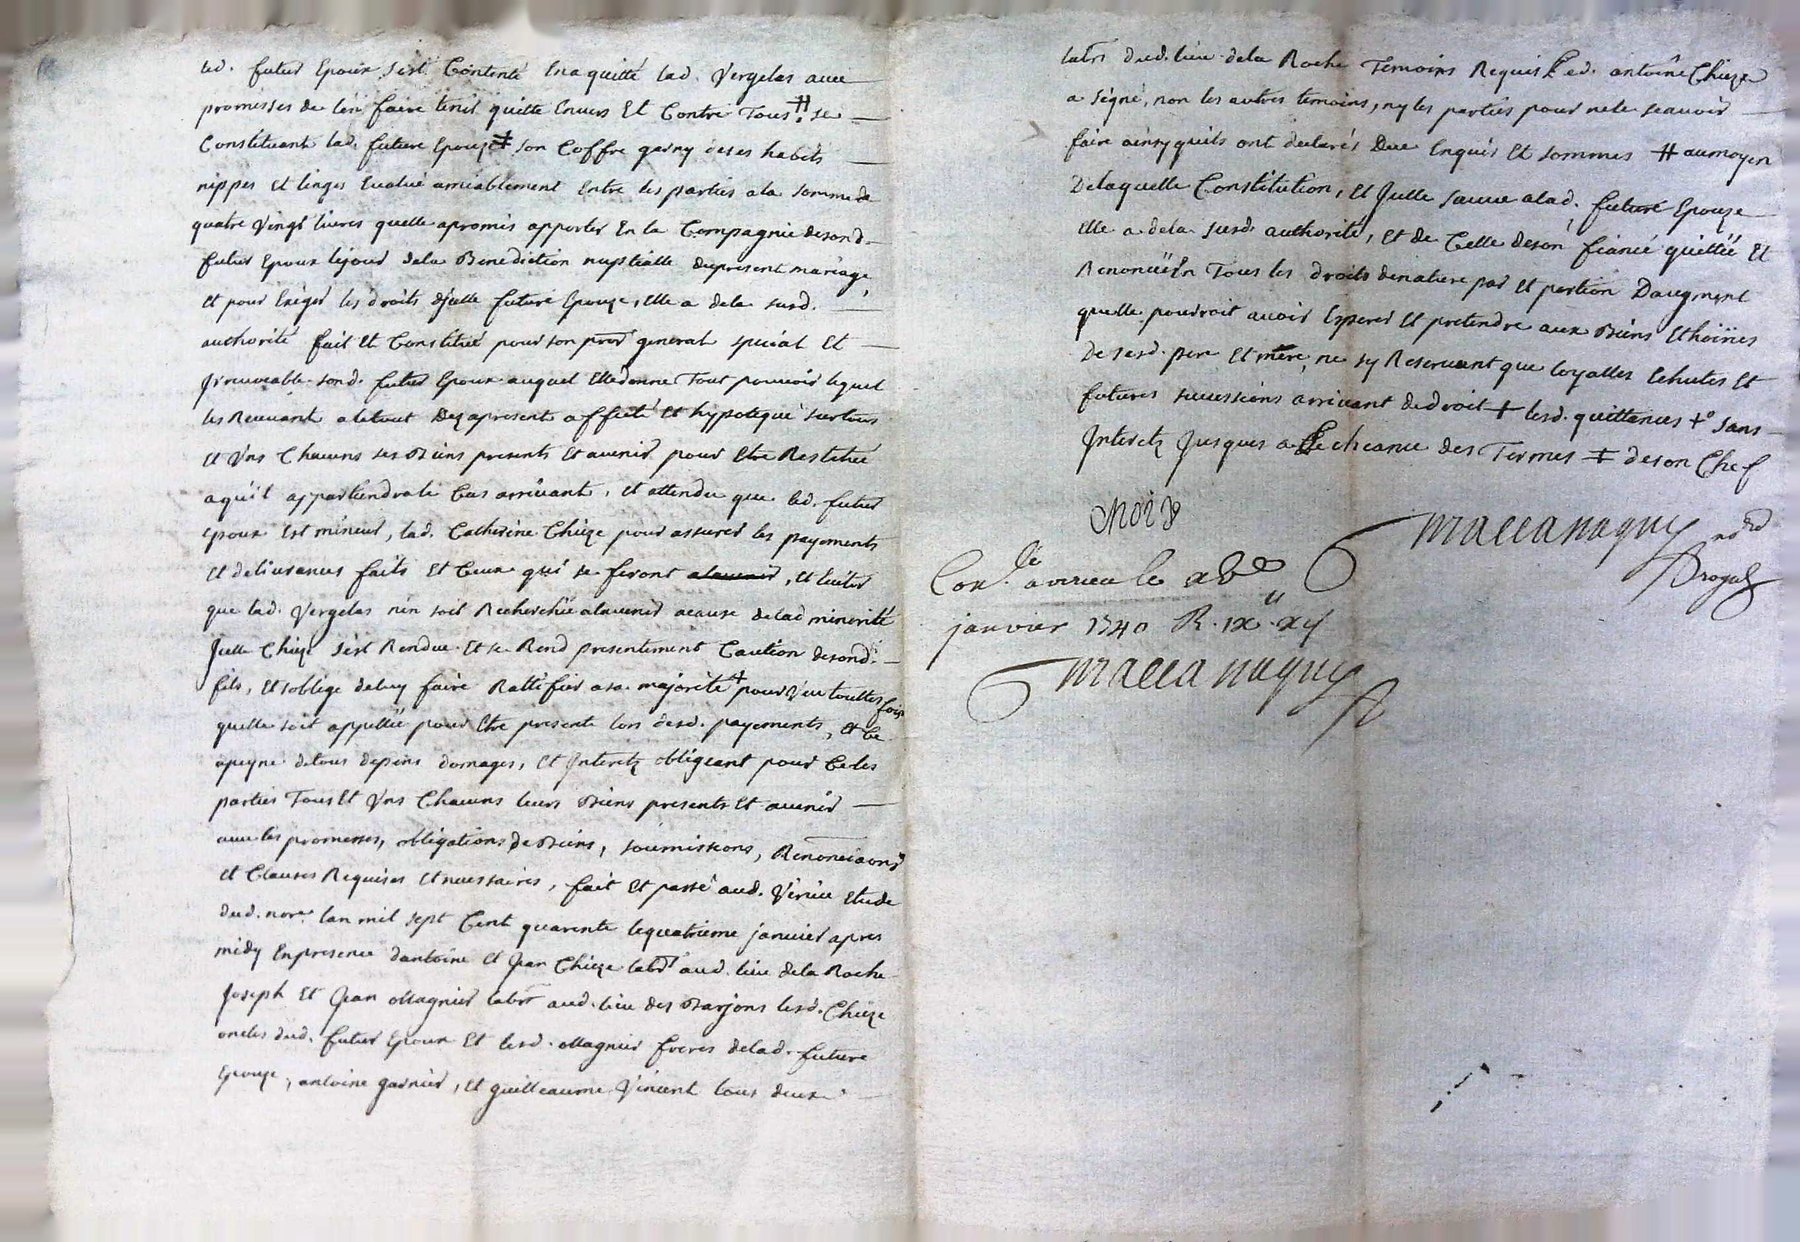 led. futur Epoux s'est Contenté Ena quitté lad. Vergelas avec
promesses de l'en faire tenir quitte Envers Et Contre Tous ⧺ se
Constituant lad. future Epouze ‡ son Coffre garny de ses habits
nippes Et linges Evalué amiablement Entre les parties a la somme de
quatre vingt livres quelle a promis apporter En la Compagnie de sond.
futur Epoux le jour de la Benediction nuptialle du present mariage,
Et pour Exiger les droits d'jcelle future Epouze, Elle a de la susd.
authorité fait Et Constitué pour son procr general special Et
Jrrevocable sond. futur Epoux auquel Elle donne Tout pouvoir lequel
les Recevant a le tout Dez a present affecté Et hypotequé sur tous
Et Vns Chacuns ses Biens presents Et avenir pour Etre Restitué
a qu'il appartiendra le Cas arrivant, Et attendu que led. futur
Epoux Est mineur, lad. Catherine Chieze pour assurer les payements
Et delivrances faits Et Ceux qui se feront alavenir, Et Eviter
que lad. Vergelas n'en soit Recherchée alavenir a cause de lad minorité
Jcelle Chieze s'est Rendue Et se Rend presentement Caution de sond.
fils, Et s'oblige de luy faire Rattifier a sa majorité + pourveu touttes fois
quelle soit appellée pour Etre presente lors desd. payements, Et Ce
apeyne de tous depens domages, Et Jnteretz obligeant pour Ce les
parties Tous Et Vns Chacuns leurs Biens presents Et avenir
avec les promesses, obligations de Biens, soumissions, Renonciaons
Et Clauses Requises Et necessaires, fait Et passé aud. Vernie Etude
dud. nore. lan mil sept Cent quarente le quatrieme janvier apres
midy En presence d'antoine Et Jean Chieze labrs aud. lieu de la Roche
Joseph Et Jean Magnier labrs aud. lieu des Barjons lesd. Chieze
oncles dud. futur Epoux Et lesd. Magnier freres de lad. future
Epouze, antoine garnier, Et guilleaume Vincent tous deux
labrs dud. lieu de la Roche Temoins Requis Led. antoine Chieze
a signé, non les autres temoins, ny les parties pour ne le sçavoir
faire ainsy quils ont declarés Due Enquis Et sommes ⧺ au moyen
De laquelle Constitution, Et Jcelle sauve a lad. future Epouze
Elle a de la susd. authorité, Et de Celle de son fiancé quitté Et
Renoncé En Tous les droits de nature par Et portion Daugment
quelle pourroit avoir Esperer Et pretendre aux Biens Et hoiries
de sesd. pere Et mere, ne sy Reservant que loyalles Echutes Et
futures successions arrivant de droit + lesd. quittances +° sans
Jnteretz Jusques a Lecheance des Termes ‡ de son Chef
Maccanaguy
Con.lé a le
janvier 1740 R. ix. xij
Maccanaguy